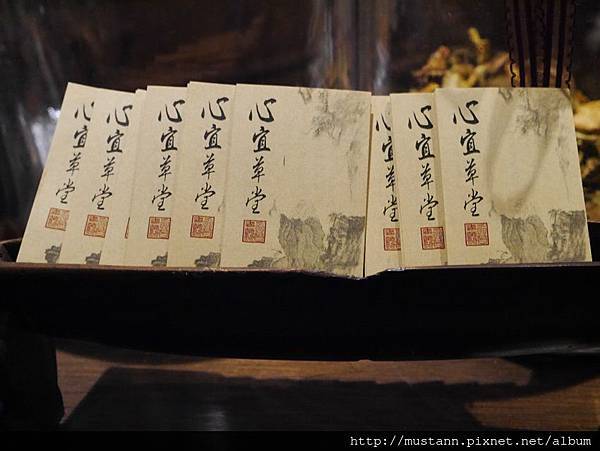 心宜草堂
心宜草堂
心宜草堂
心宜草堂
心宜草堂
心宜草堂
心宜草堂
心宜草堂
http://mustann.pixnet.net/album